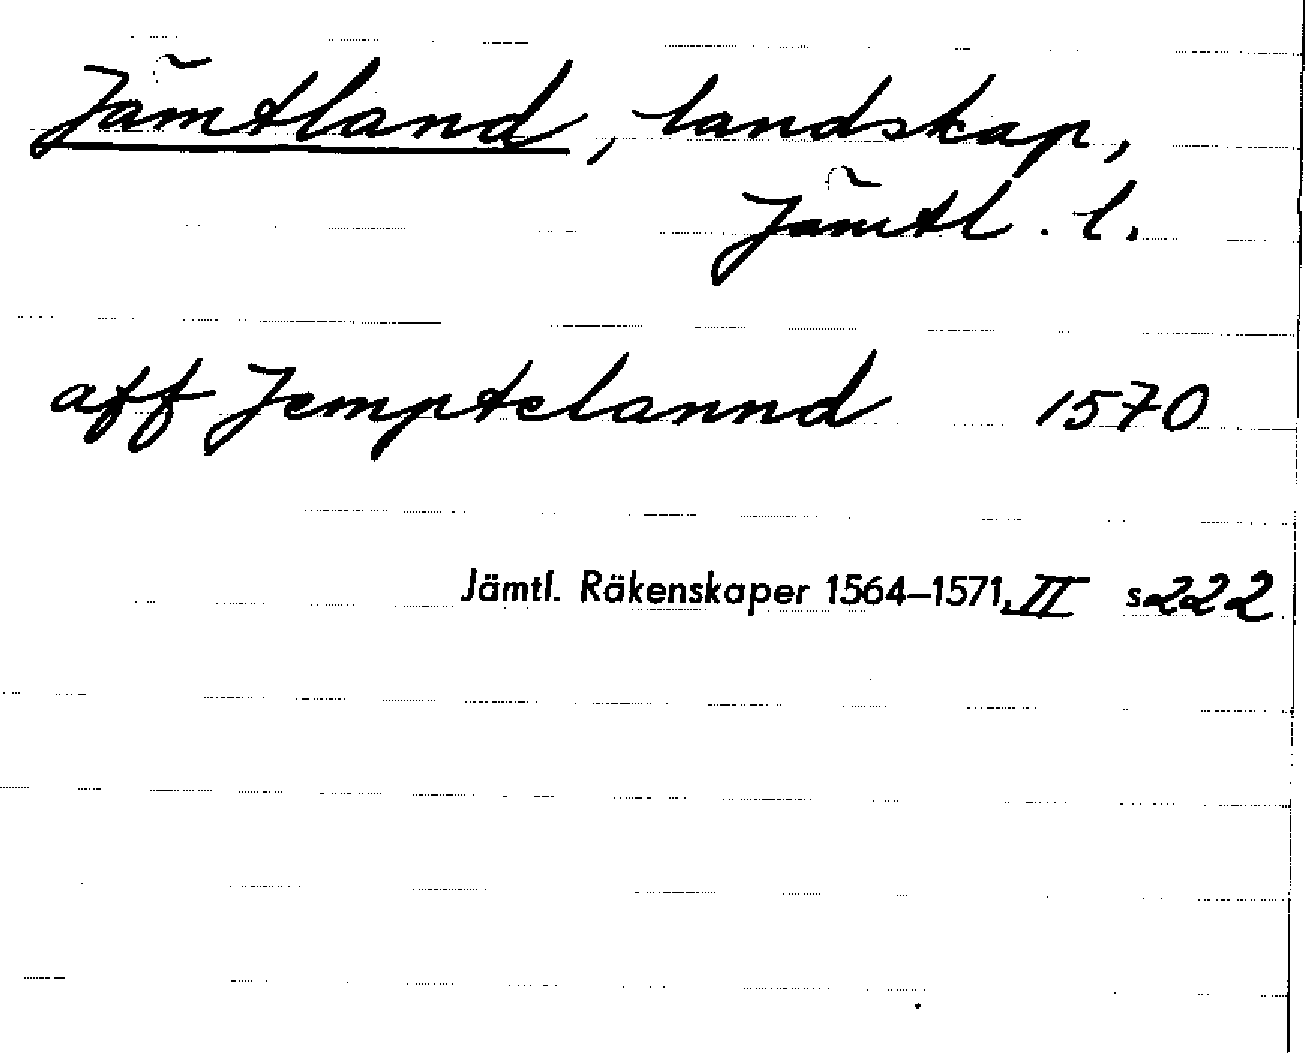 Jämtland, landskap,
Jämtl. l.
aff Jemptelannd 1570
Jämtl. Räkenskaper 1564–1571, II s 222